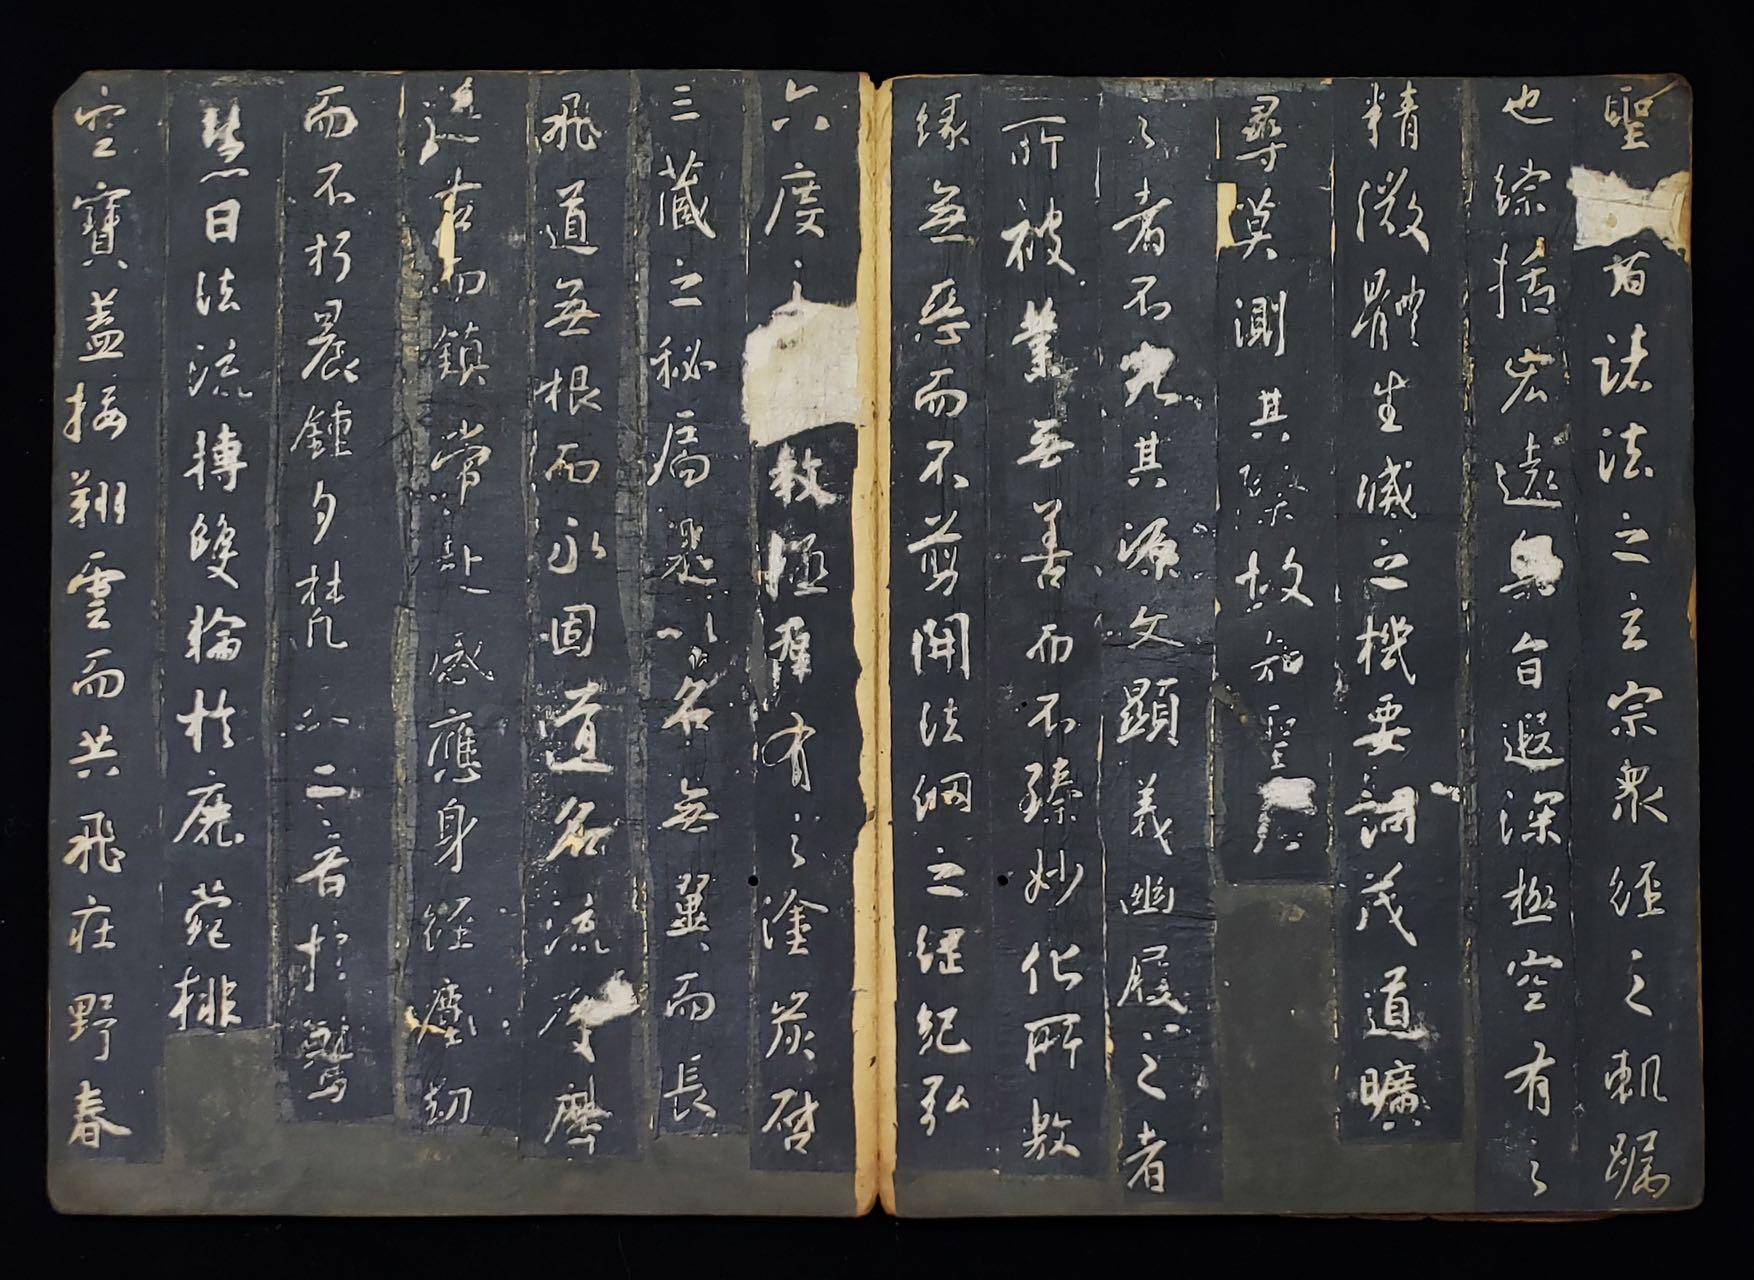 聖者諸法之玄宗衆經之軌躅
也綜括宏遠奧旨遐深極空有之
精微體生滅之機要詞茂道曠
尋莫測其際故知聖慈
之者不究其源文顯義幽履之者
所被業無善而不臻妙化所敷
緣無惡而不剪開法網之綱紀弘
六度之教拯羣有之塗炭啓
三藏之秘扃是以名無翼而長
飛道無根而永固道名流慶歷
遂古而鎮常赴感應身經塵劫
而不朽晨鍾夕梵交二音於鷲
慧日法流轉雙輪於鹿菀排
空寶蓋接翔雲而共飛莊野春